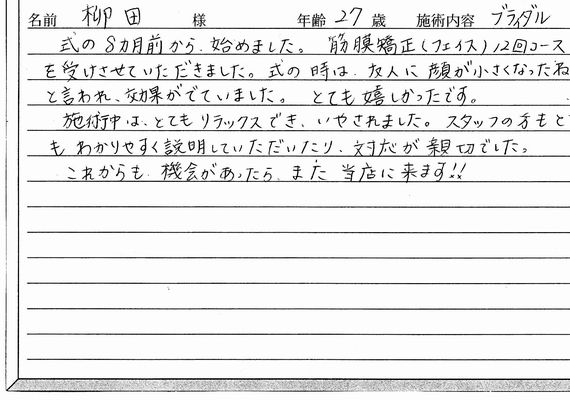 名前 柳田 様 年齢 27 歳 施術内容 ブライダル
式の8カ月前から、始めました。筋膜矯正(フェイス)12回コース
を受けさせていただきました。式の時は、友人に顔が小さくなったね
と言われ、効果がでていました。とても嬉しかったです。
施術中は、とてもリラックスでき、いやされました。スタッフの方もと
もわかりやすく説明していただいたり、対応が親切でした。
これからも、機会があったら、また当店に来ます!!